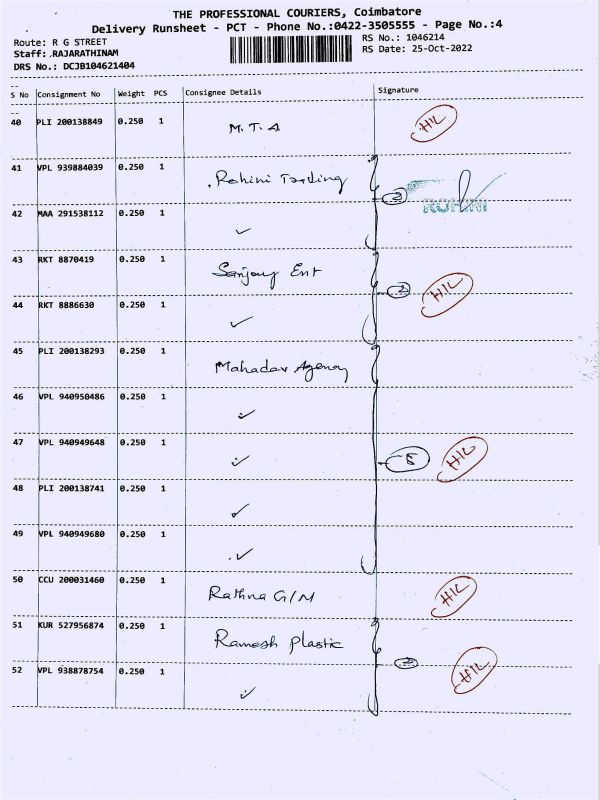 THE PROFESSIONAL COURIERS, Coimbatore
Delivery Runsheet - PCT - Phone No.:0422-3505555 - Page No.:4
Route: R G STREET
RS No.: 1046214
Staff: RAJARATHINAM
RS Date: 25-Oct-2022
DRS No.: DCJB104621404
S No Consignment No Weight PCS Consignee Details Signature
40 PLI 200138849 0.250 1 M.T.A HIL
41 VPL 939884039 0.250 1 Rohini Trading
3 ROHINI
42 MAA 291538112 0.250 1 ✓
43 RKT 8870419 0.250 1 Sanjay Ent
2 HIL
44 RKT 8886630 0.250 1 ✓
45 PLI 200138293 0.250 1 Mahadav Agency
46 VPL 940950486 0.250 1 ✓
47 VPL 940949648 0.250 1 ✓ 5 HIL
48 PLI 200138741 0.250 1 ✓
49 VPL 940949680 0.250 1 ✓
50 CCU 200031460 0.250 1 Rathna G/M HIL
51 KUR 527956874 0.250 1 Ramesh Plastic
2 HIL
52 VPL 938878754 0.250 1 ✓